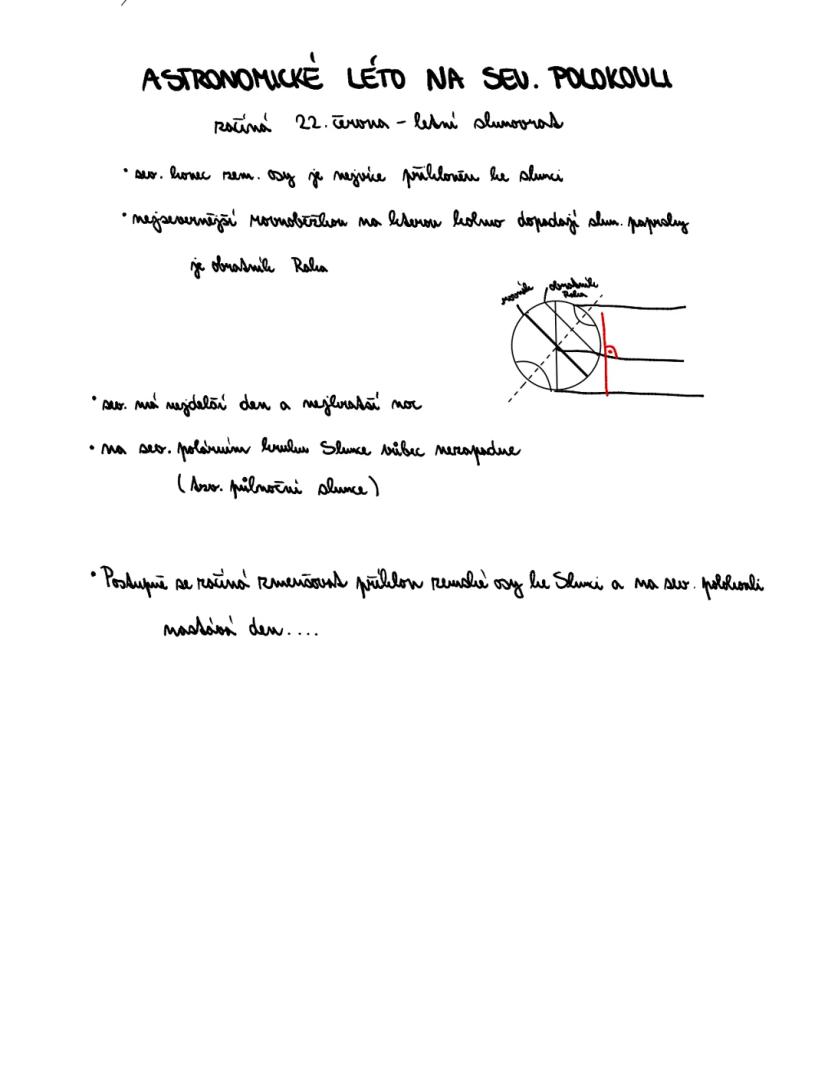 ASTRONOMICKÉ LÉTO NA SEV. POLOKOULI
začíná 22. června - letní slunovrat
• sev. konec zem. osy je nejvíce přikloněn ke slunci
• nejsevernější rovnoběžkou na kterou kolmo dopadají slun. paprsky
je obratník Raka
rovník obratník
Raka
• sev. má nejdelší den a nejkratší noc
• na sev. polárním kruhu Slunce vůbec nezapadne
(tzv. půlnoční slunce)
• Postupně se začíná zmenšovat příklon zemské osy ke Slunci a na sev. polokouli
nastává den....